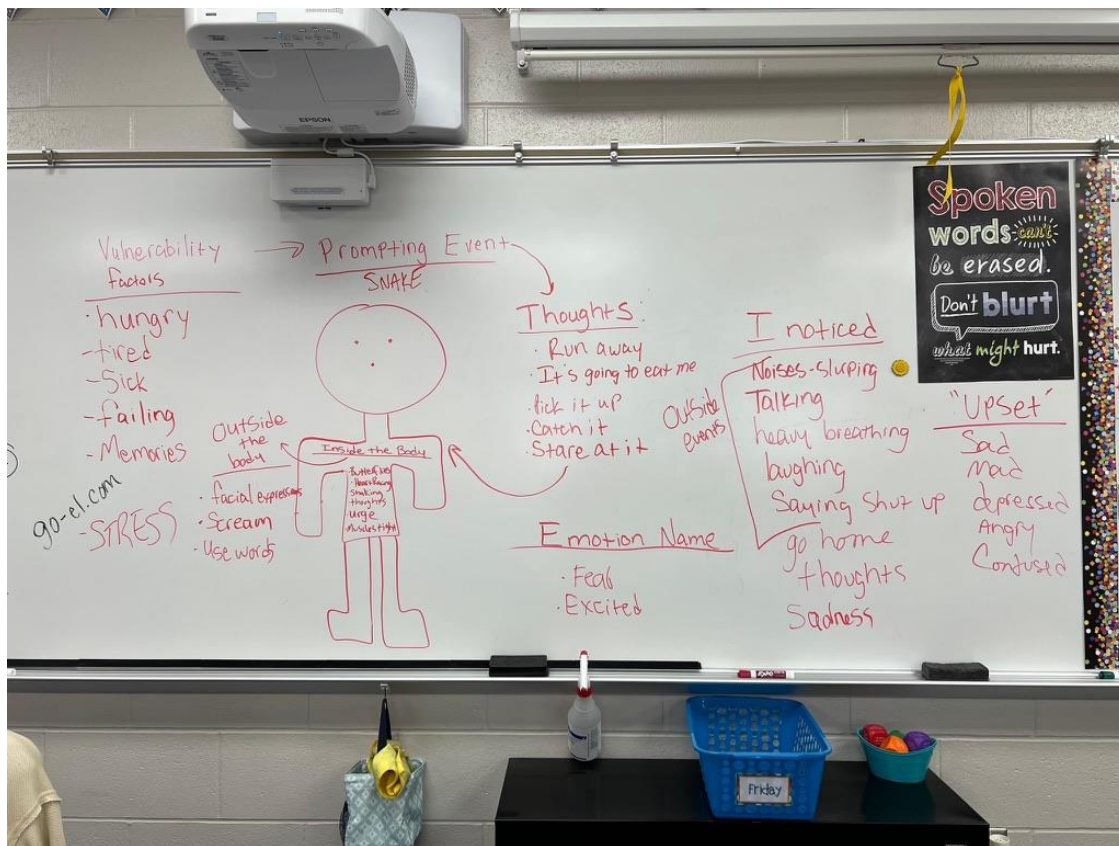 EPSON
Vulnerability
factors
· hungry
- tired
- Sick
- failing
- Memories
- STRESS
go-el.com
Prompting Event
SNAKE
Outside
the
body
· facial expressions
· Scream
· Use words
Inside the Body
· Butterflies
· Heart Racing
Shaking
thoughts
Urge
Muscles tight
Thoughts:
· Run away
· It's going to eat me
· Pick it up
· Catch it
· Stare at it
Emotion Name
· Fear
· Excited
Outside
events
I noticed
Noises-slurping
Talking
heavy breathing
laughing
Saying shut up
go home
thoughts
Sadness
"Upset"
Sad
Mad
depressed
Angry
Confused
Spoken
words can't
be erased.
Don't blurt
what might hurt.
EXPO
Friday